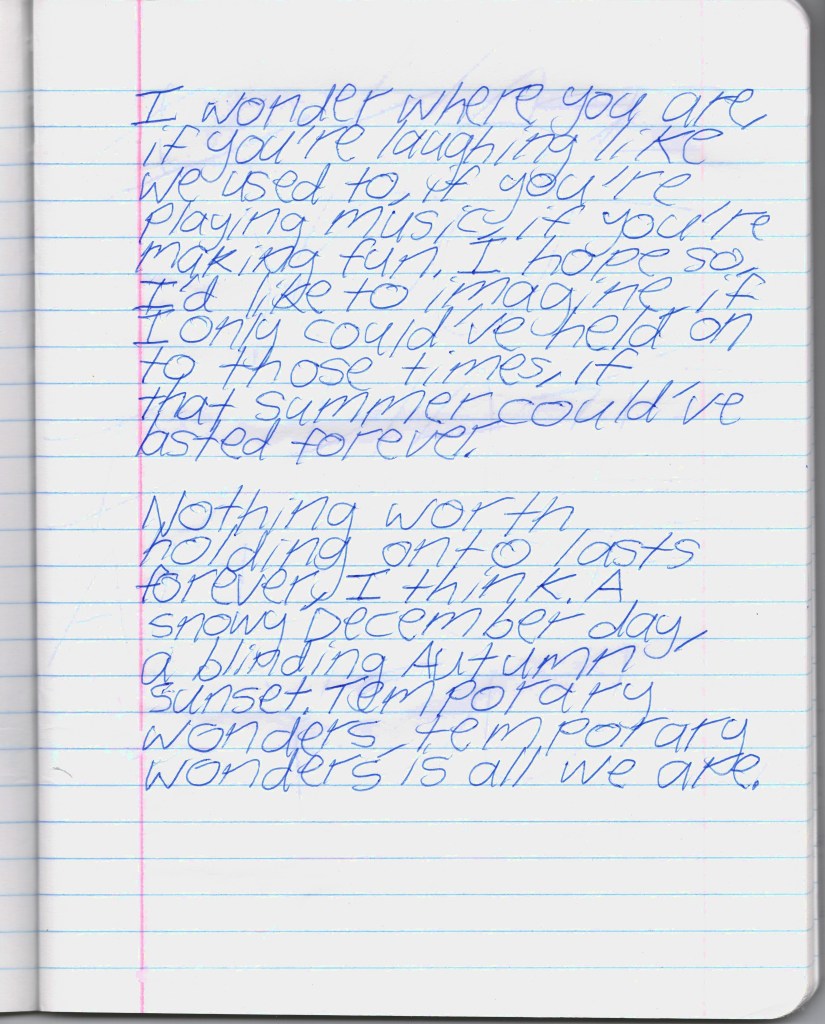 I wonder where you are,
if you're laughing like
we used to, if you're
playing music, if you're
making fun. I hope so,
I'd like to imagine, if
I only could've held on
to those times, if
that summer could've
lasted forever.
Nothing worth
holding onto lasts
forever, I think. A
snowy December day,
a blinding Autumn
sunset. Temporary
wonders, temporary
wonders is all we are.